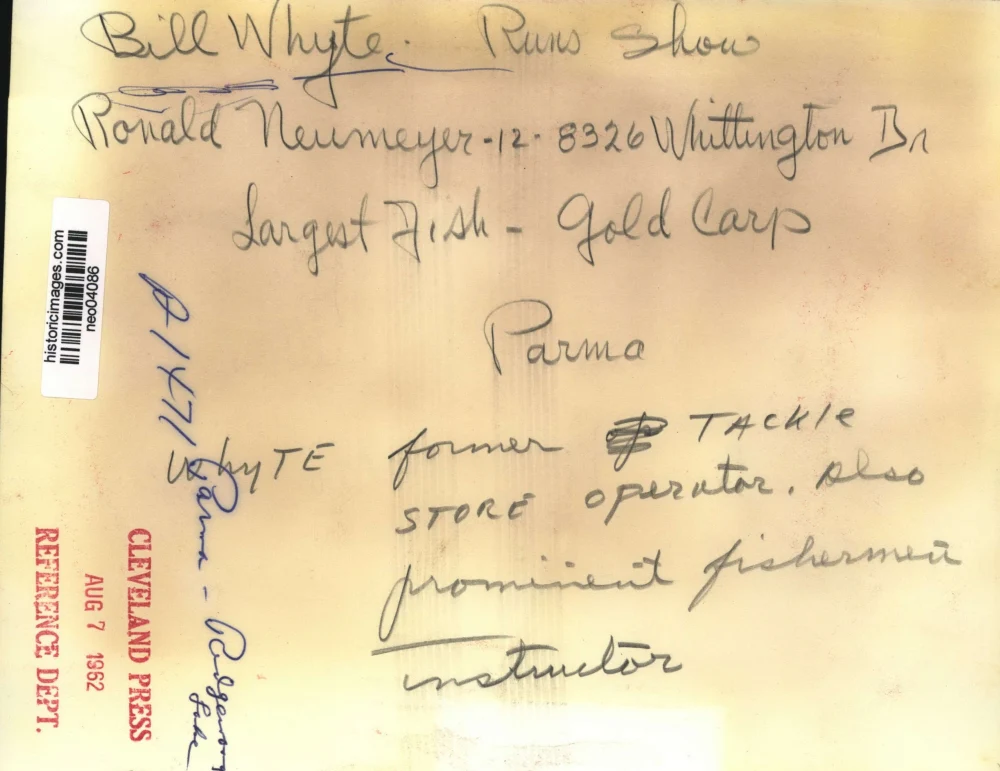 Bill Whyte. Runs Show
Ronald Neumeyer -12- 8326 Whittington Dr
Largest Fish - Gold Carp
Parma
Whyte former TACKLE
STORE operator. Also
prominent fishermen
instructor
historicimages.com
neo04086
Parma - Ridgewood
Lake
CLEVELAND PRESS
AUG 7 1962
REFERENCE DEPT.